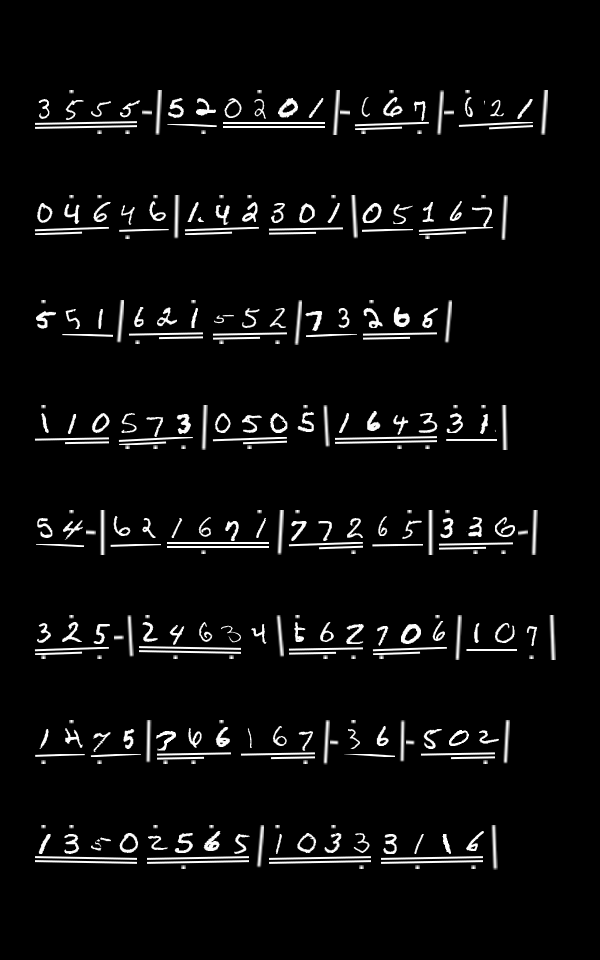 3 5 5 5 - | 5 2 0 2 0 1 | - 6 7 | - 6 2 1 |
0 4 6 4 6 | 1 4 2 3 0 1 | 0 5 1 6 7 |
5 5 1 | 6 2 1 5 5 2 | 7 3 2 6 6 |
1 1 0 5 7 3 | 0 5 0 5 | 1 6 4 3 3 1 |
5 4 - | 6 2 1 6 7 1 | 7 7 2 6 5 | 3 3 6 - |
3 2 5 - | 2 4 6 3 4 | 6 2 7 0 6 | 1 0 7 |
1 4 7 5 | 3 6 6 1 6 7 | - 3 6 | - 5 0 2 |
1 3 5 0 2 5 6 5 | 1 0 3 3 3 1 1 6 |